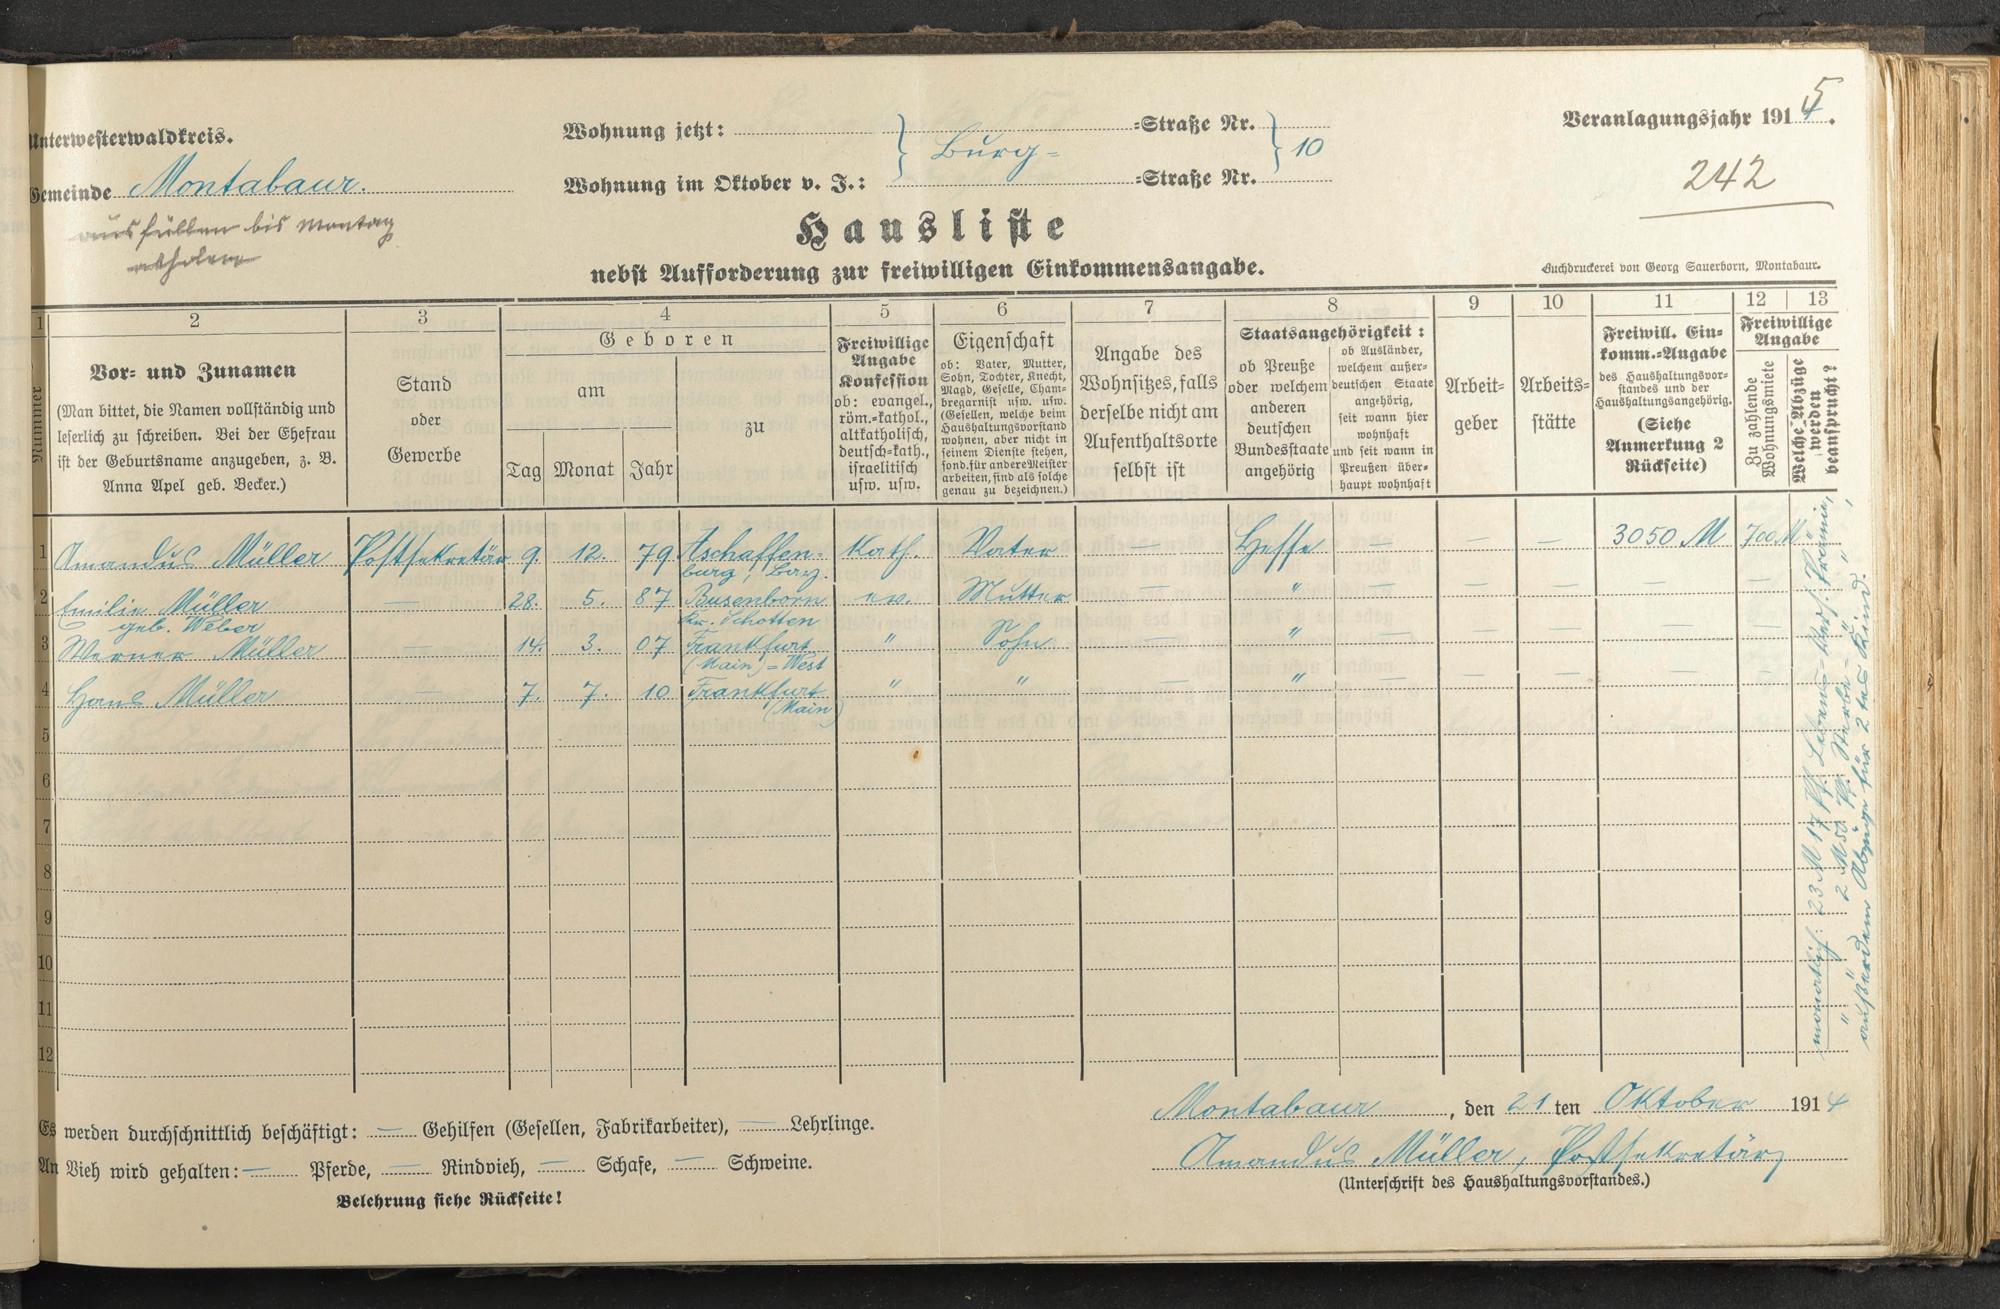 Unterwesterwaldkreis.
Gemeinde Montabaur.
ausfüllen bis Montag
abholen
Wohnung jetzt: Burg= =Straße Nr. 10
Wohnung im Oktober v. J.: =Straße Nr.
Veranlagungsjahr 1915.
242
Hausliste
nebst Aufforderung zur freiwilligen Einkommensangabe.
Buchdruckerei von Georg Sauerborn, Montabaur.
1 2 3 4 5 6 7 8 9 10 11 12 13
Nummer
Vor- und Zunamen
(Man bittet, die Namen vollständig und
leserlich zu schreiben. Bei der Ehefrau
ist der Geburtsname anzugeben, z. B.
Anna Apel geb. Becker.)
Stand
oder
Gewerbe
Geboren
am
Tag Monat Jahr
zu
Freiwillige
Angabe
Konfession
ob: evangel.,
röm.=kathol.,
altkatholisch,
deutsch=kath.,
israelitisch
usw. usw.
Eigenschaft
ob: Vater, Mutter,
Sohn, Tochter, Knecht,
Magd, Geselle, Cham=
bregarnist usw. usw.
(Gesellen, welche beim
Haushaltungsvorstand
wohnen, aber nicht in
seinem Dienste stehen,
sond. für andere Meister
arbeiten, sind als solche
genau zu bezeichnen.)
Angabe des
Wohnsitzes, falls
derselbe nicht am
Aufenthaltsorte
selbst ist
Staatsangehörigkeit:
ob Preuße
oder welchem
anderen
deutschen
Bundesstaate
angehörig
ob Ausländer,
welchem außer=
deutschen Staate
angehörig,
seit wann hier
wohnhaft
und seit wann in
Preußen über=
haupt wohnhaft
Arbeit=
geber
Arbeits=
stätte
Freiwill. Ein=
komm.=Angabe
des Haushaltungsvor=
standes und der
Haushaltungsangehörig.
(Siehe
Anmerkung 2
Rückseite)
Freiwillige
Angabe
Zu zahlende
Wohnungsmiete
Welche Abzüge
werden
beansprucht?
1 Amandus Müller Postsekretär 9. 12. 79 Aschaffen=
burg, Bay. kath. Vater — Hesse — — — 3050 M 700 M
2 Emilie Müller
geb. Weber — 28. 5. 87 Busenborn
Kr. Schotten ev. Mutter — " — — — — —
3 Werner Müller — 14. 3. 07 Frankfurt
(Main)=West " Sohn — " — — — — —
4 Hans Müller — 7. 7. 10 Frankfurt
(Main) " " — " — — — — —
5
6
7
8
9
10
11
12
monatlich: 23 M 17 Pf. Lebens=Vers. Prämie,
" 2 M 50 Pf. Sterbe= " " ,
außerdem Abzüge für 2tes Kind.
Es werden durchschnittlich beschäftigt: — Gehilfen (Gesellen, Fabrikarbeiter), — Lehrlinge.
An Vieh wird gehalten: — Pferde, — Rindvieh, — Schafe, — Schweine.
Belehrung siehe Rückseite!
Montabaur, den 21 ten Oktober 1914
Amandus Müller, Postsekretär
(Unterschrift des Haushaltungsvorstandes.)